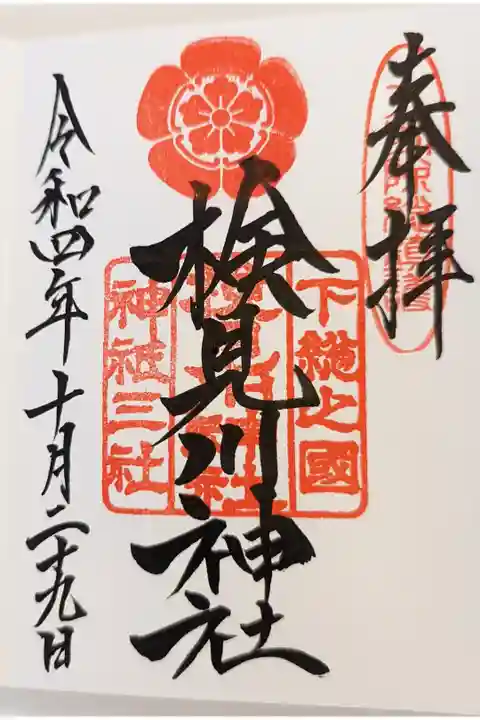 奉拝
検見川神社
下総之國
神社三社
令和四年十月二十九日